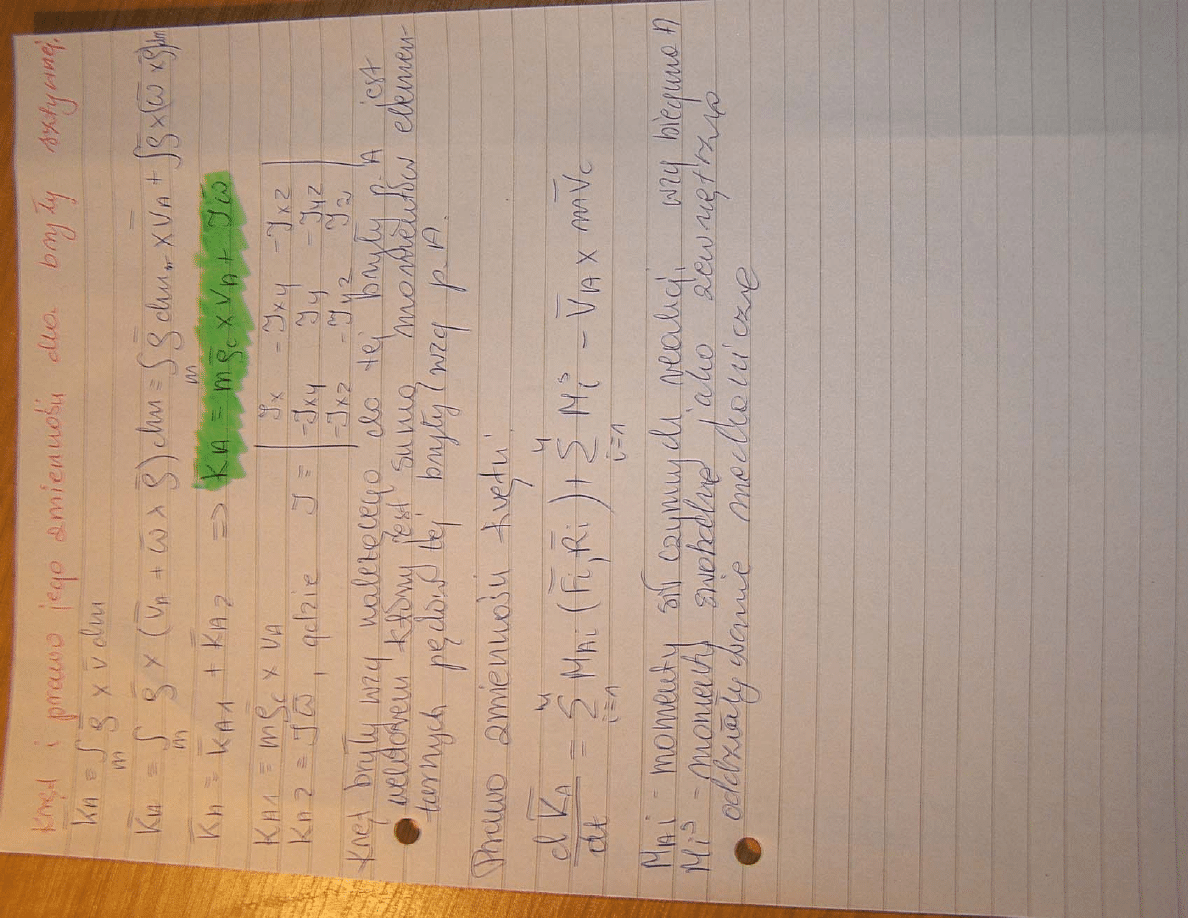 Kręt i prawo jego zmienności dla bryły sztywnej.
K̄A = ∫m ρ̄ × v̄ dm
K̄A = ∫m ρ̄ × (v̄A + ω̄ × ρ̄) dm = ∫m ρ̄ dm × v̄A + ∫ρ̄ × (ω̄ × ρ̄)dm
K̄A = K̄A1 + K̄A2 => K̄A = mρ̄c × v̄A + Jω̄
KA1 = mρ̄c × vA
KA2 = Jω̄, gdzie J = | Jx -Jxy -Jxz |
| -Jxy Jy -Jyz |
| -Jxz -Jyz Jz |
Kręt bryły wzg należącego do tej bryły p. A jest
wektorem który jest sumą momentów elemen-
tarnych pędów tej bryły wzg p. A.
Prawo zmienności krętu
dK̄A/dt = Σ i=1 n MAi (F̄i, R̄i) + Σ i=1 n Mi^s - V̄A × mV̄c
MAi - momenty sił czynnych reakcji wzg bieguna A
Mi^s - momenty swobodne jako zewnętrzne
oddziaływanie mechaniczne